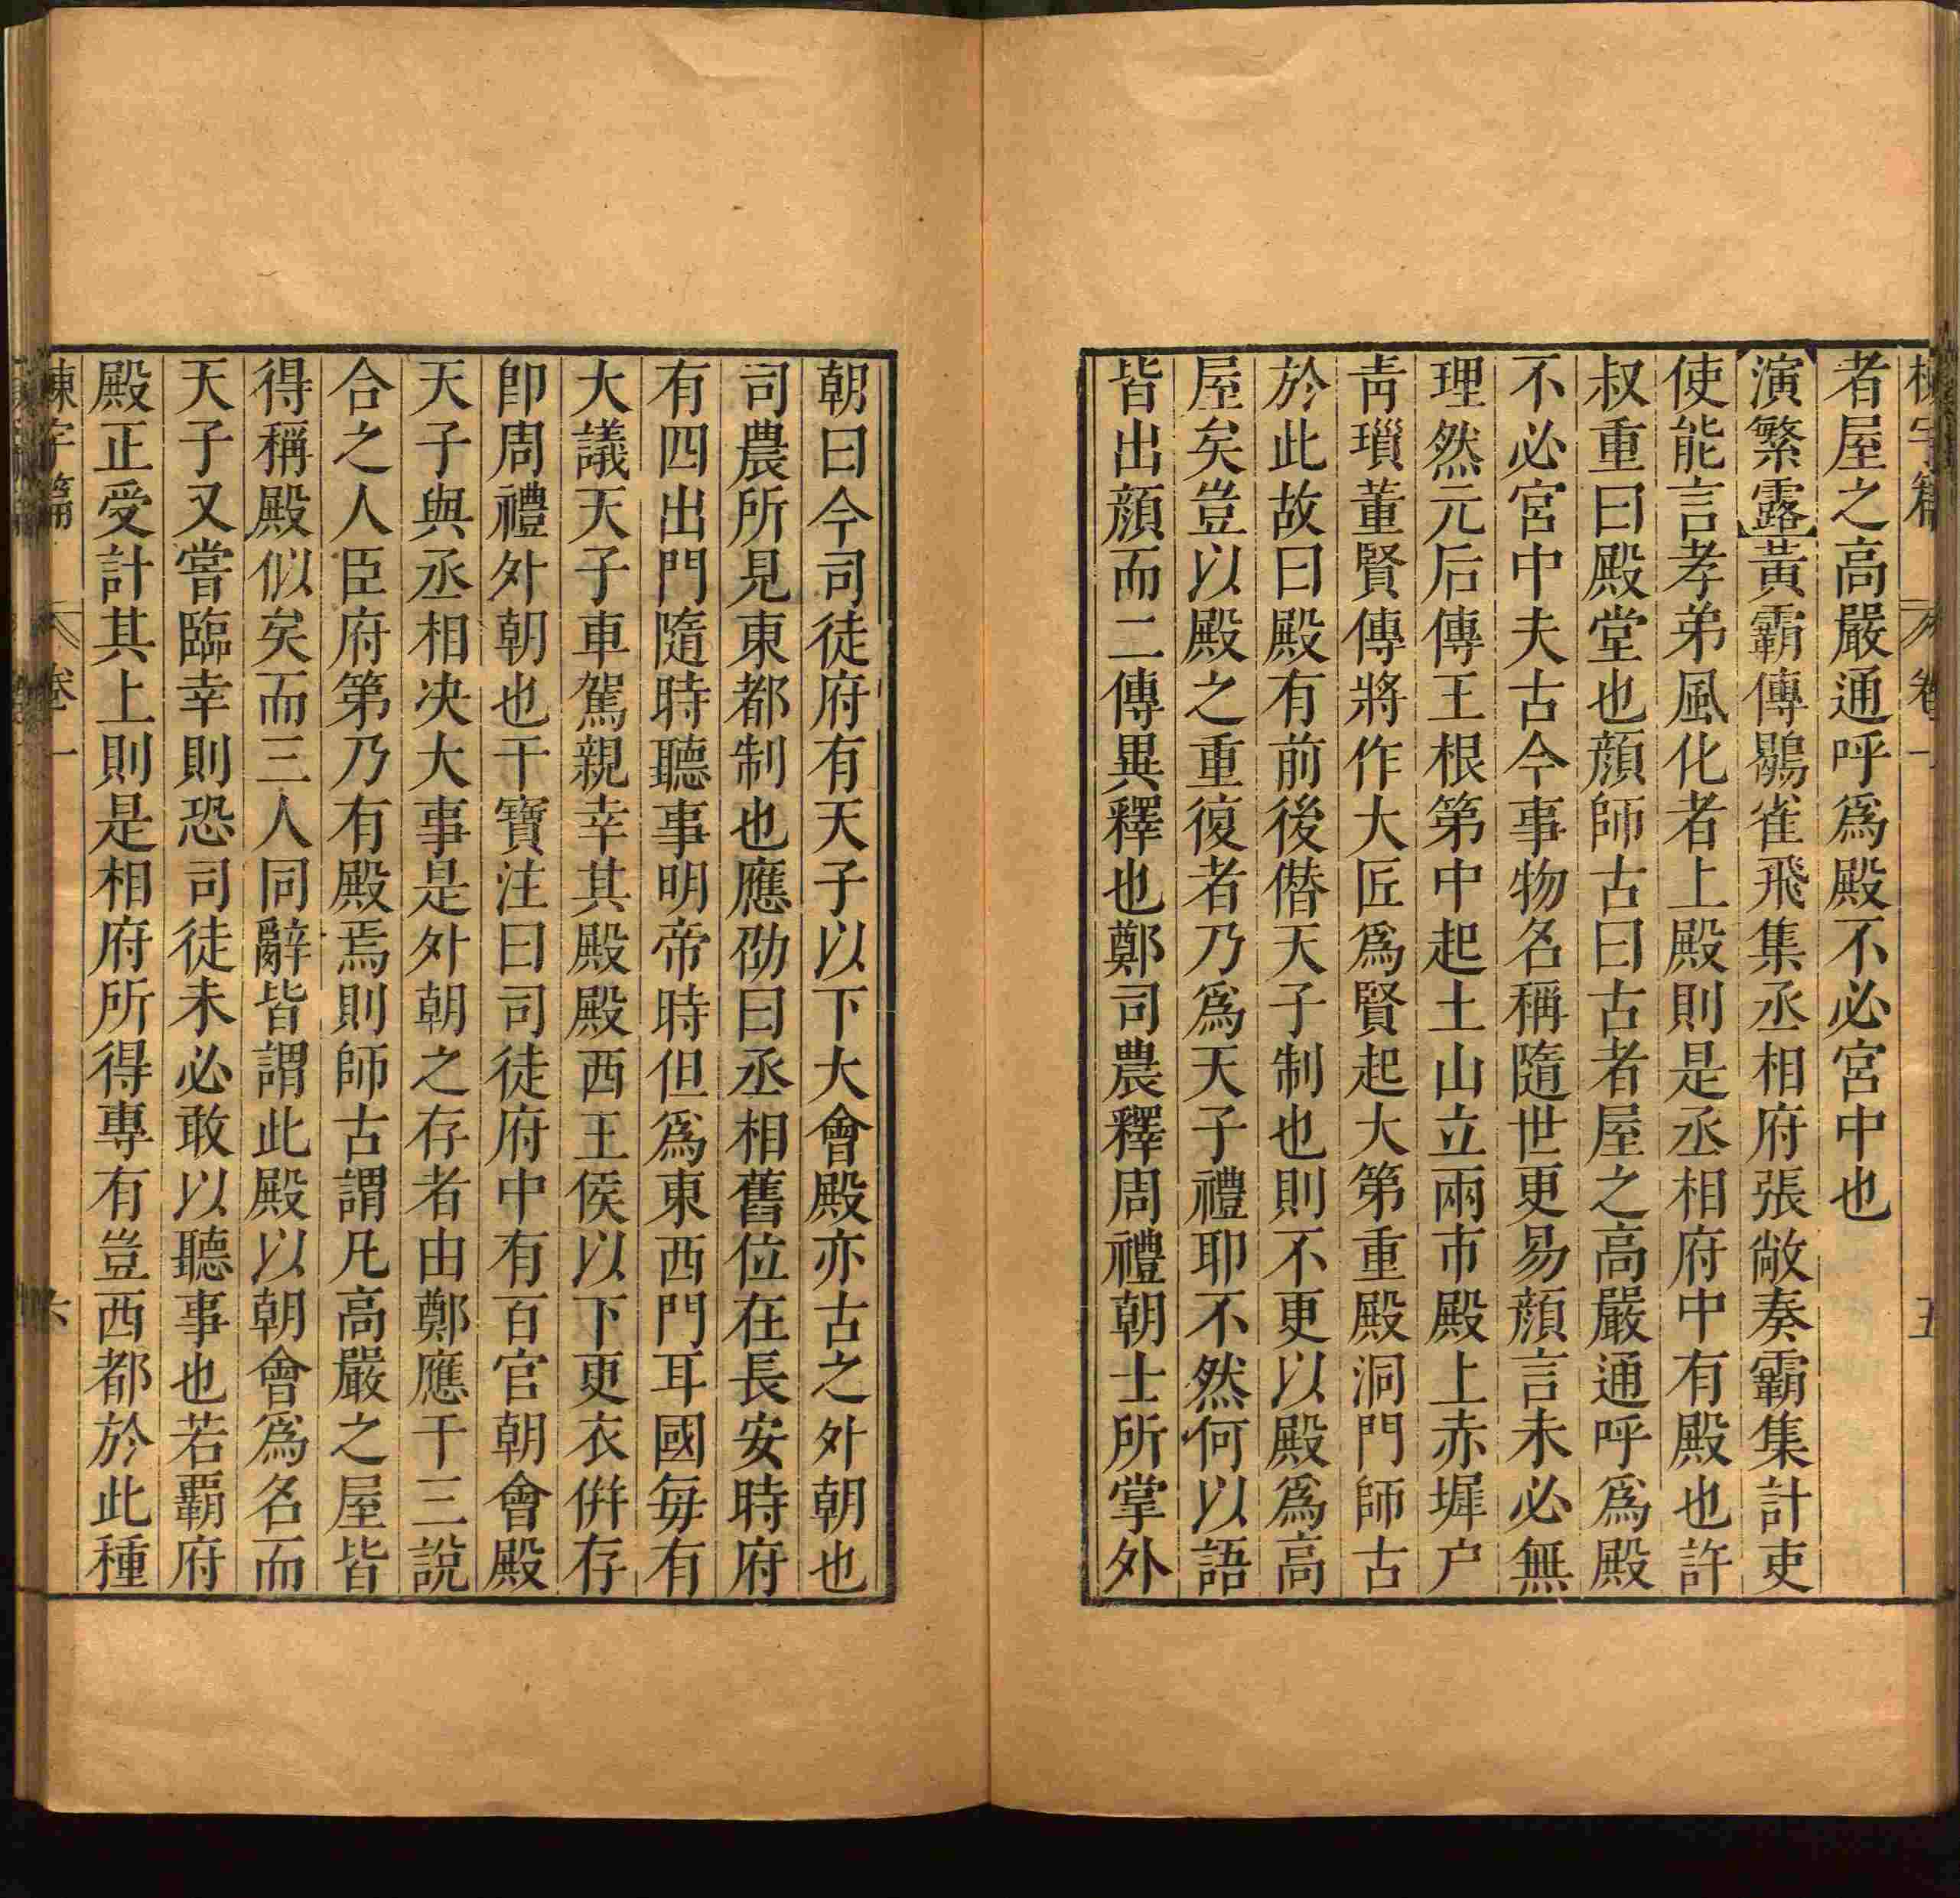 者屋之高嚴通呼爲殿不必宮中也
演繁露黃霸傳鶡雀飛集丞相府張敞奏霸集計吏
使能言孝弟風化者上殿則是丞相府中有殿也許
叔重曰殿堂也顏師古曰古者屋之高嚴通呼爲殿
不必宮中夫古今事物名稱隨世更易顏言未必無
理然元后傳王根第中起土山立兩市殿上赤墀户
靑瑣董賢傳將作大匠爲賢起大第重殿洞門師古
於此故曰殿有前後僣天子制也則不更以殿爲高
屋矣豈以殿之重復者乃爲天子禮耶不然何以語
皆出顏而二傳異釋也鄭司農釋周禮朝士所掌外
朝曰今司徒府有天子以下大會殿亦古之外朝也
司農所見東都制也應劭曰丞相舊位在長安時府
有四出門隨時聽事明帝時但爲東西門耳國每有
大議天子車駕親幸其殿殿西王侯以下更衣倂存
卽周禮外朝也干寶注曰司徒府中有百官朝會殿
天子與丞相决大事是外朝之存者由鄭應干三說
合之人臣府第乃有殿焉則師古謂凡高嚴之屋皆
得稱殿似矣而三人同辭皆謂此殿以朝會爲名而
天子又嘗臨幸則恐司徒未必敢以聽事也若霸府
殿正受計其上則是相府所得專有豈西都於此種
字篇 卷一 六